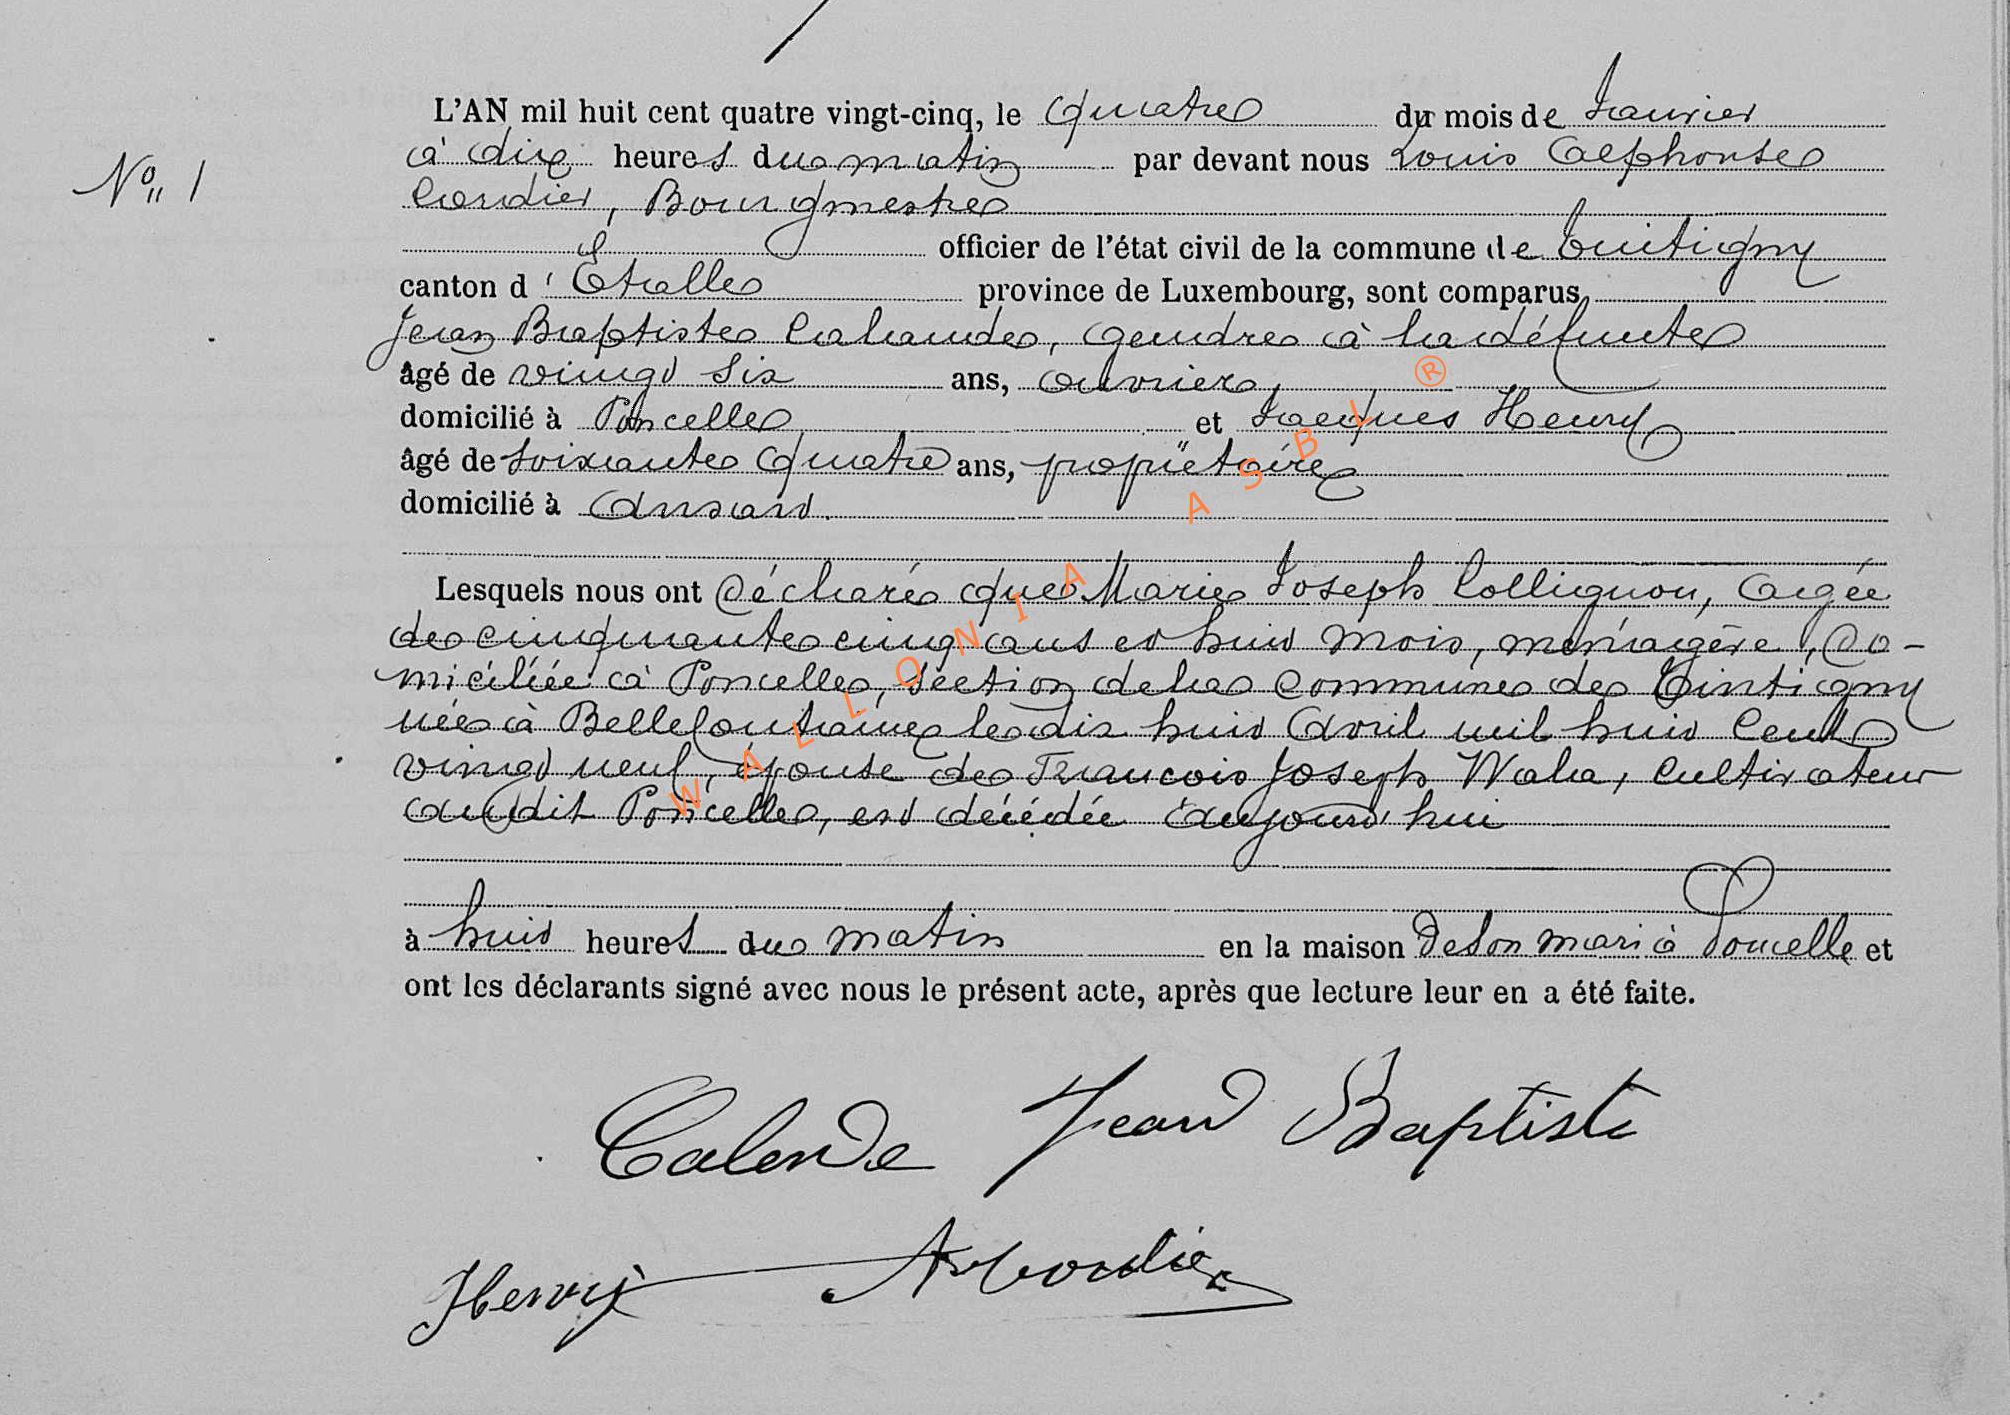 No 1
L'AN mil huit cent quatre vingt-cinq, le quatre du mois de Janvier
à dix heures du matin par devant nous Louis Alphonse
Cordier, Bourgmestre
officier de l'état civil de la commune de Tintigny
canton d'Etalle province de Luxembourg, sont comparus
Jean Baptiste Calande, gendre à la défunte
âgé de vingt six ans, ouvrier,
domicilié à Poncelle et Jacques Henry
âgé de soixante quatre ans, propiétaire
domicilié à Ansart.
Lesquels nous ont déclaré que Marie Joseph Collignon, agée
de cinquante cinq ans et huit mois, ménagère, do-
miciliée à Poncelle, section de la commune de Tintigny
née à Bellefontaine le dix huit Avril mil huit Cent
vingt neuf, épouse de Francois Joseph Wala, Cultivateur
audit Poncelle, est décédée aujourd'hui
à huit heures du matin en la maison de son mari à Poncelle et
ont les déclarants signé avec nous le présent acte, après que lecture leur en a été faite.
Calande Jean Baptiste
Henry
WALLONIA ASBL ®